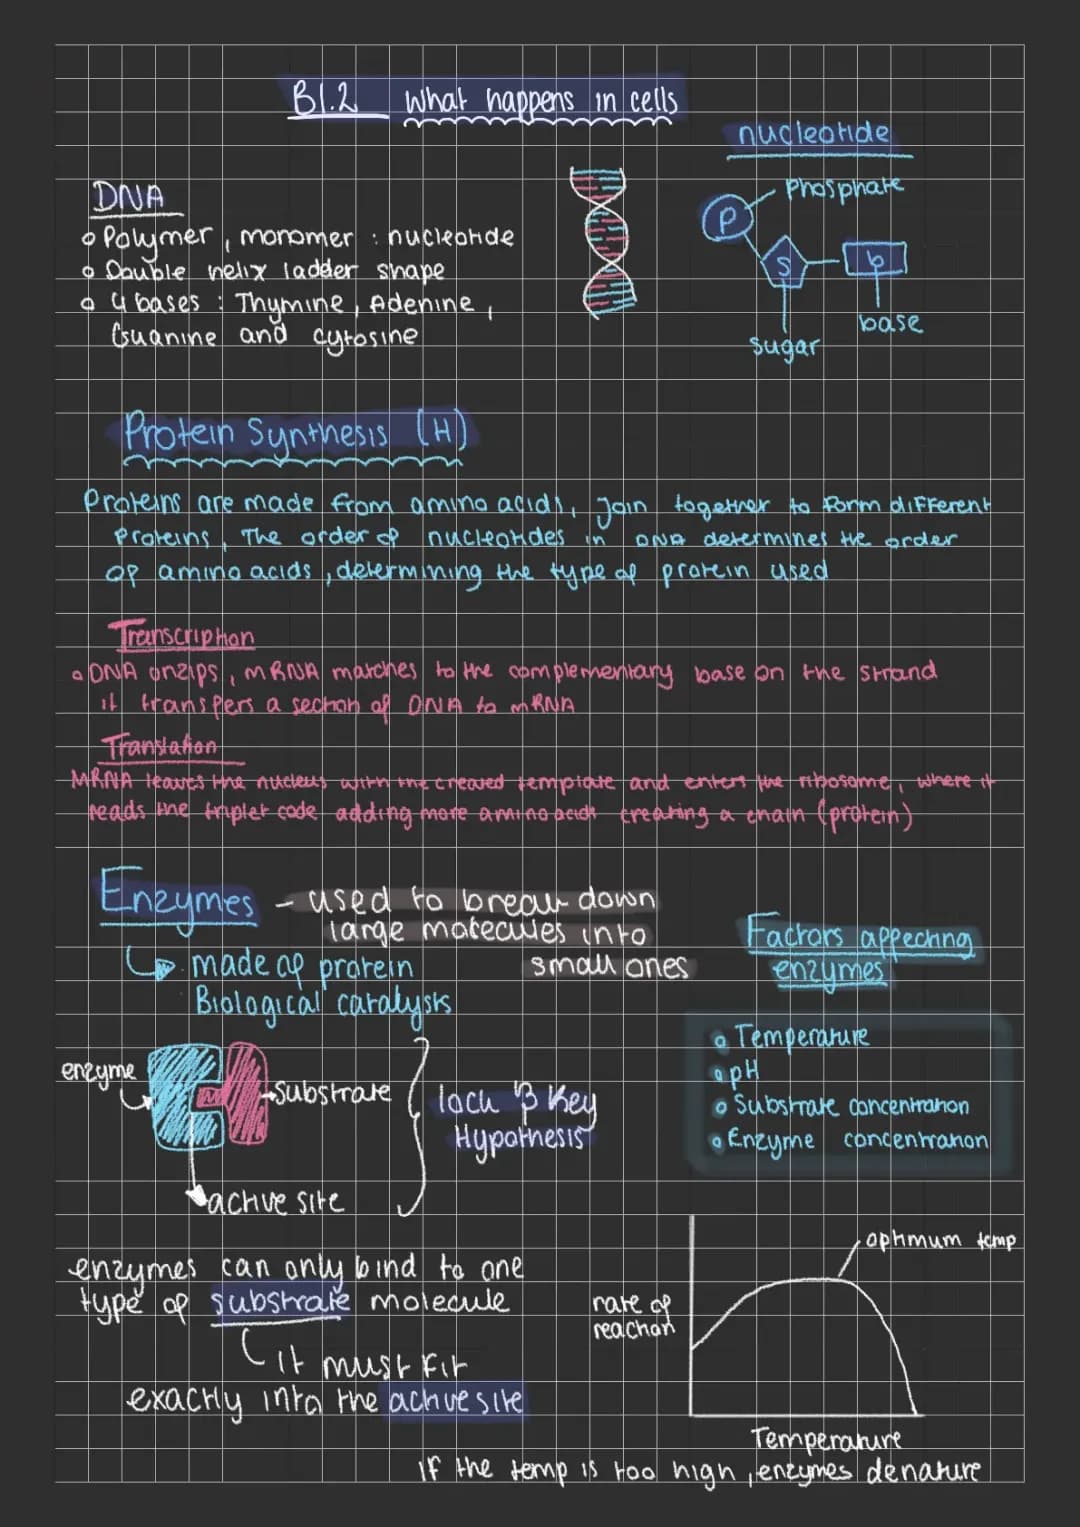 B1.2 What happens in cells
nucleotide
Phosphate
P
S
b
base
sugar
DNA
Polymer, monomer : nucleotide
Double helix ladder shape
4 bases : Thymine, Adenine,
Guanine and cytosine
Protein Synthesis (H)
Proteins are made from amino acids, Join together to form different
Proteins, The order of nucleotides in DNA determines the order
of amino acids, determining the type of protein used
Transcription
DNA unzips, mRNA matches to the complementary base on the strand
it transfers a section of DNA to mRNA
Translation
MRNA leaves the nucleus with the created template and enters the ribosome, where it
reads the triplet code adding more amino acids creating a chain (protein)
Enzymes - used to break down
large molecules into
small ones
made of protein
Biological catalysts
Factors affecting
enzymes
Temperature
pH
Substrate concentration
Enzyme concentration
enzyme
Substrate
active site
lock & Key
Hypothesis
enzymes can only bind to one
type of substrate molecule
it must fit
exactly into the active site
optimum temp
rate of
reaction
Temperature
If the temp is too high, enzymes denature